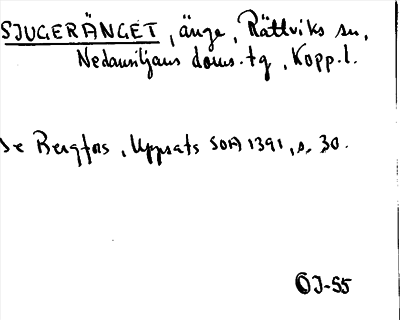 SJUGERÄNGET, änge, Rättviks sn,
Nedansiljans doms.tg, Kopp.l.
Se Bergfors, Uppsats SOA 1391, s. 30.
ÖJ-55